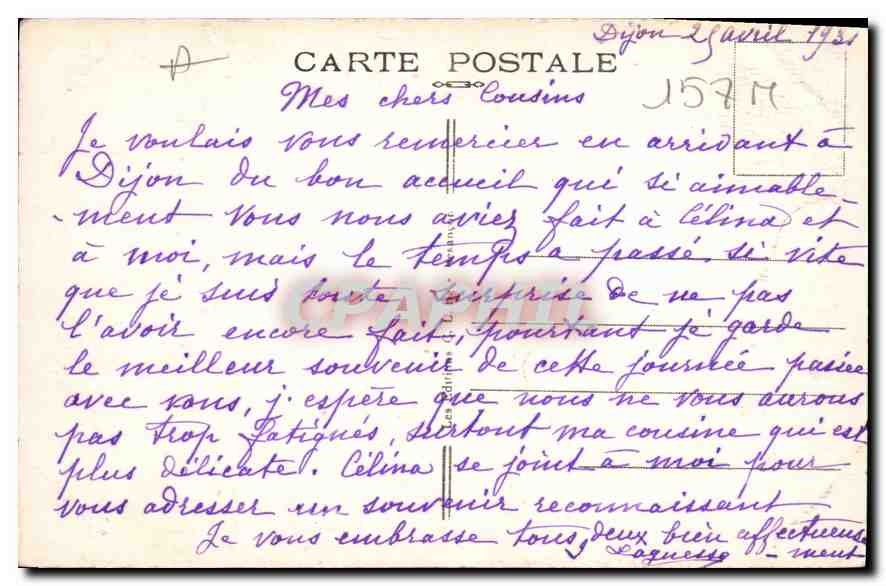 Dijon 25 avril 1931
CARTE POSTALE
157 M
Mes chers Cousins
Je voulais vous remercier en arrivant à
Dijon du bon accueil qui si aimable
-ment vous nous aviez fait à Célina et
à moi, mais le temps a passé si vite
que je suis toute surprise de ne pas
l'avoir encore fait, pourtant je garde
le meilleur souvenir de cette journée passée
avec vous, j'espère que nous ne vous aurons
pas trop fatigués, surtout ma cousine qui est
plus délicate. Célina se joint à moi pour
vous adresser un souvenir reconnaissant
Je vous embrasse tous deux bien affectueuse
-ment
Les Editions
CPAPHIL